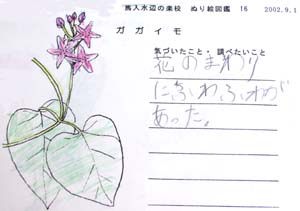 馬入水辺の楽校 ぬり絵図鑑 16 2002.9.1
ガガイモ
気づいたこと・調べたいこと
花のまわり
にふわふわが
あった。